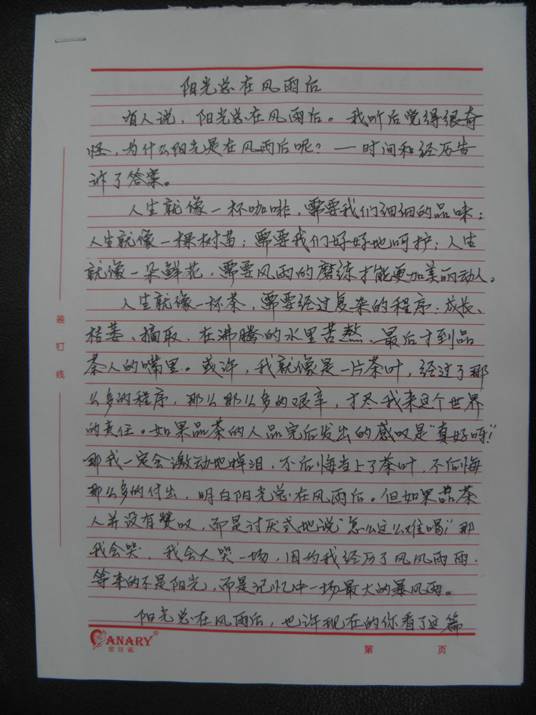 阳光总在风雨后
有人说，阳光总在风雨后。我听后觉得很奇
怪，为什么阳光是在风雨后呢？—时间和经历告
诉了答案。
人生就像一杯咖啡，需要我们细细的品味；
人生就像一棵树苗；需要我们好好地呵护；人生
就像一朵鲜花，需要风雨的磨练才能更加美丽动人。
人生就像一杯茶，需要经过复杂的程序，成长、
枯萎、摘取、在沸腾的水里苦熬、最后才到品
茶人的嘴里。或许，我就像是一片茶叶，经过了那
么多的程序，那么那么多的艰辛，才尽我来这个世界
的责任。如果品茶的人品完后发出的感叹是“真好呀！”
那我一定会激动地掉泪，不后悔当上了茶叶，不后悔
那么多的付出，明白阳光总在风雨后。但如果品茶
人并没有赞叹，而是讨厌式地说“怎么这么难喝！”那
我会哭，我会大哭一场，因为我经历了风风雨雨，
等来的不是阳光，而是记忆中一场最大的暴风雨。
阳光总在风雨后，也许现在的你看了这篇
装
订
线
CANARY®
第 页